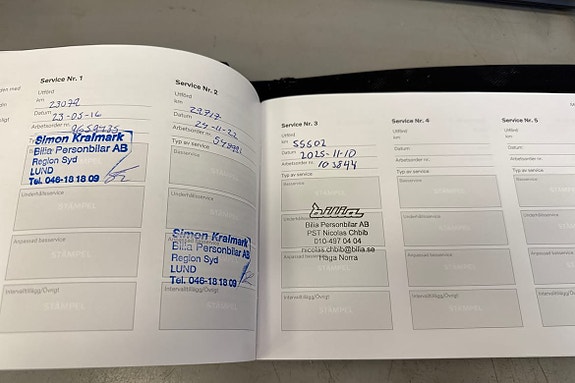 Service Nr. 1
Utförd
km 23079
Datum 23-05-16
Arbetsorder nr.
Simon Kralmark
Bilia Personbilar AB
Region Syd
LUND
Tel. 046-18 18 09
Underhållsservice
STÄMPEL
Anpassad basservice
STÄMPEL
Intervalltillägg/Övrigt
STÄMPEL
Service Nr. 2
Utförd
km 29717
Datum 24-11-22
Arbetsorder nr.
Typ av service
Basservice
STÄMPEL
Underhållsservice
Simon Kralmark
Bilia Personbilar AB
Region Syd
LUND
Tel. 046-18 18 09
Intervalltillägg/Övrigt
STÄMPEL
Service Nr. 3
Utförd
km 55602
Datum 2025-11-10
Arbetsorder nr. 103844
Typ av service
Basservice
bilia
Bilia Personbilar AB
PST Nicolas Chbib
010-497 04 04
nicolas.chbib@bilia.se
Haga Norra
Anpassad basservice
STÄMPEL
Intervalltillägg/Övrigt
STÄMPEL
Service Nr. 4
Utförd
km
Datum
Arbetsorder nr.
Typ av service
Basservice
STÄMPEL
Underhållsservice
STÄMPEL
Anpassad basservice
STÄMPEL
Intervalltillägg/Övrigt
STÄMPEL
Service Nr. 5
Utförd
km
Datum
Arbetsorder nr.
Typ av service
Basservice
STÄMPEL
Underhållsservice
STÄMPEL
Anpassad basservice
STÄMPEL
Intervalltillägg/Övrigt
STÄMPEL